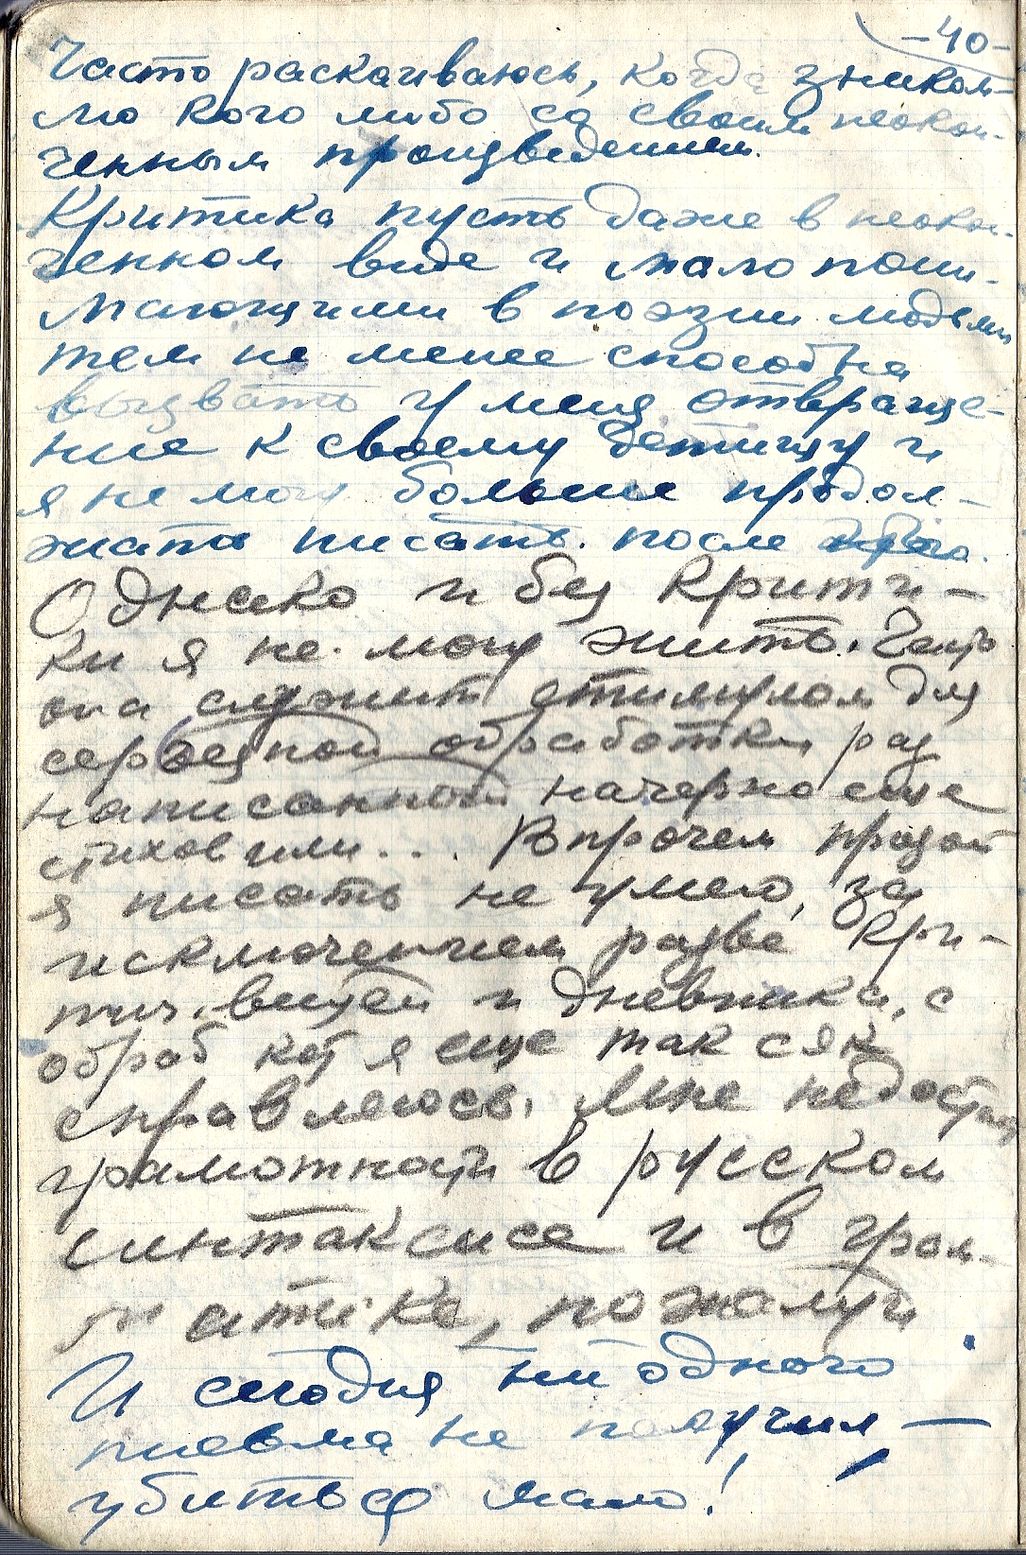 -40-
Часто раскаиваюсь, когда знаком-
лю кого либо со своим неокон-
ченным произведением.
Критика пусть даже в неокон-
ченном виде и мало пони-
мающими в поэзии людьми
тем не менее способна
вызвать у меня отвраще-
ние к своему детищу и
я не могу больше продол-
жать писать после
Однако и без крити-
ки я не могу жить. Часто
она служит стимулом для
серьезной обработки раз
написанный начерно еще
стихов или... Впрочем прозой
я писать не умею, за
исключением разве кри-
тич. вещей и дневника, с
обраб кот я еще так сяк
справляюсь. Мне недостает
грамотности в русском
синтаксисе и в грам-
матике, пожалуй.
И сегодня ни одного
письма не получил, —
убиться мало!